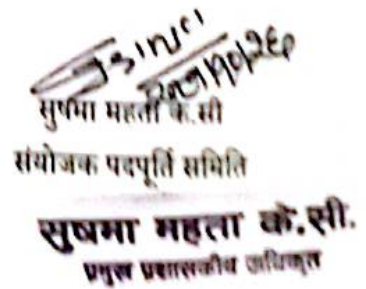 सुषमा महता के.सी
संयोजक पदपूर्ति समिति
सुषमा महता के.सी.
प्रमुख प्रशासकीय अधिकृत